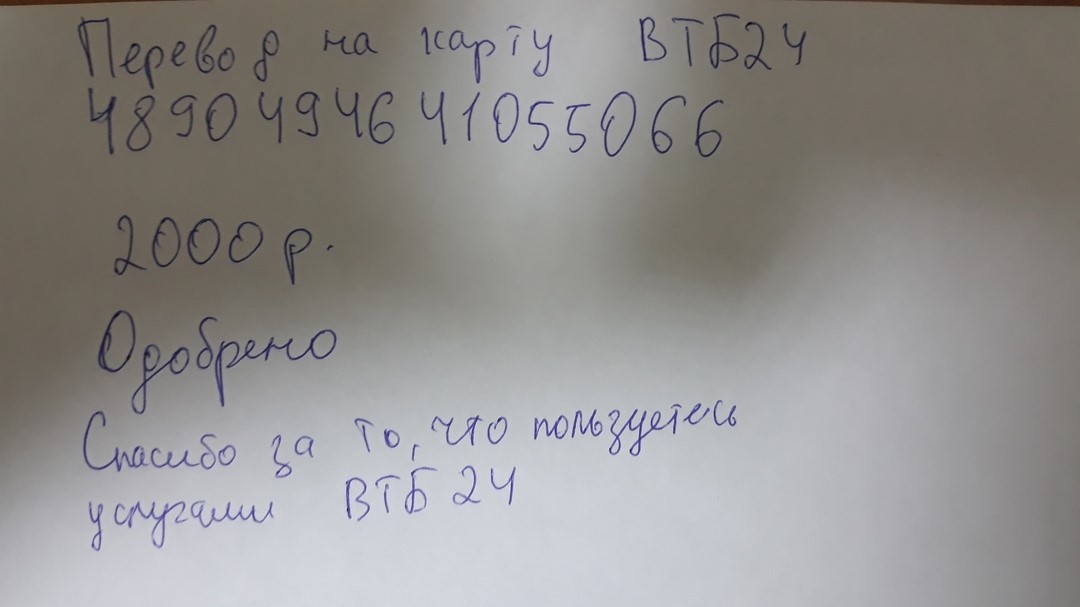 Перевод на карту ВТБ24
4890494641055066
2000 р.
Одобрено
Спасибо за то, что пользуетесь
услугами ВТБ 24